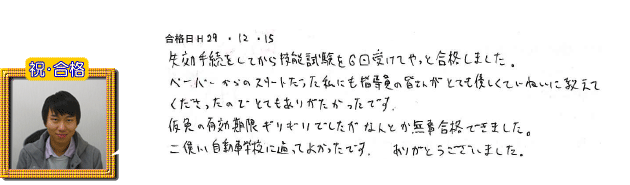 祝・合格
合格日 H 29 ・ 12 ・ 15
失効手続をしてから技能試験を6回受けてやっと合格しました。
ペーパーからのスタートだった私にも指導員の皆さんがとても優しくていねいに教えて
くださったのでとてもありがたかったです。
仮免の有効期限ギリギリでしたがなんとか無事合格できました。
二俣川自動車学校に通ってよかったです。 ありがとうございました。